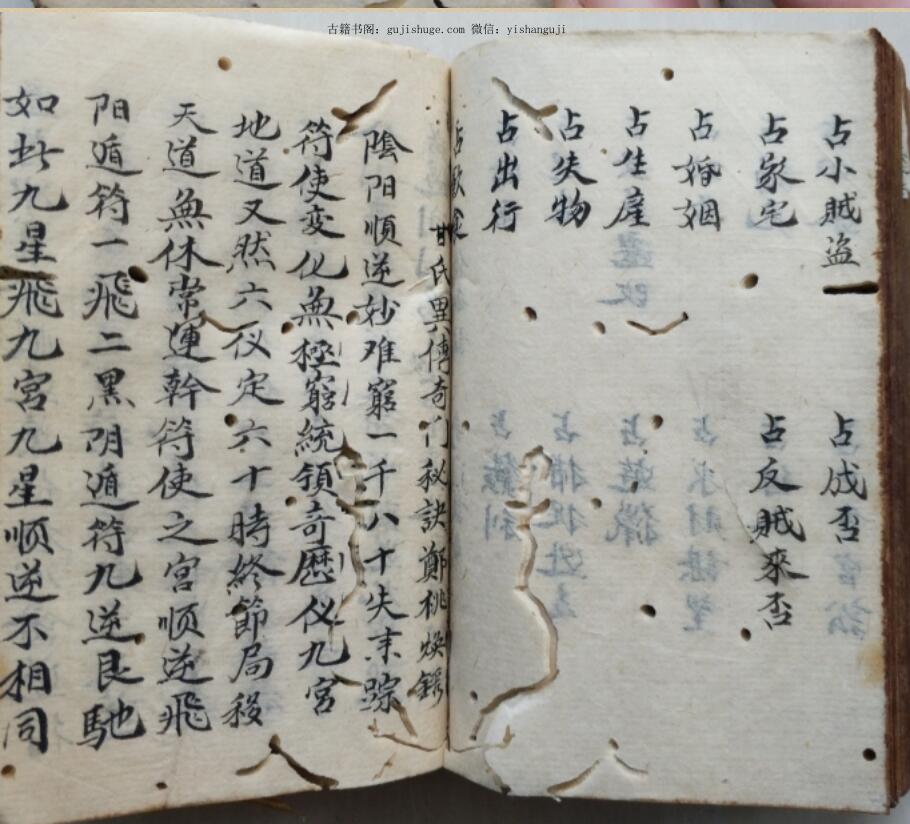 古籍书阁：gujishuge.com 微信：yishanguji
占小贼盗
占成否
占家宅
占反贼來否
占婚姻
占生産
占失物
占出行
甘氏異傳奇门秘訣鄭桃焕錄
陰阳順逆妙难窮一千八十失末踪
符使变化無極窮統領奇歷仪九宮
地道又然六仪定六十時終節局移
天道無休常運幹符使之宮順逆飛
阳遁符一飛二黑阴遁符九逆艮馳
如此九星飛九宮九星顺逆不相同